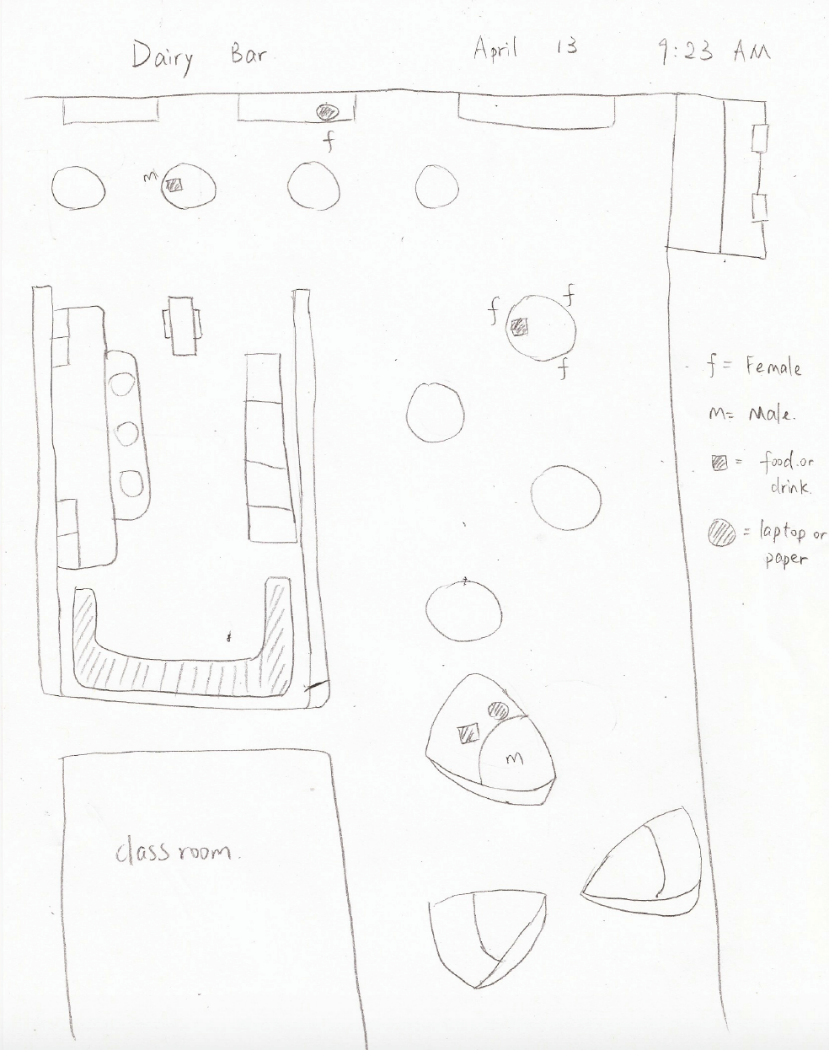 Dairy Bar
April 13
9:23 AM
f
m
f
f
f
f = Female
m= Male.
= food or
drink
= laptop or
paper
m
classroom.